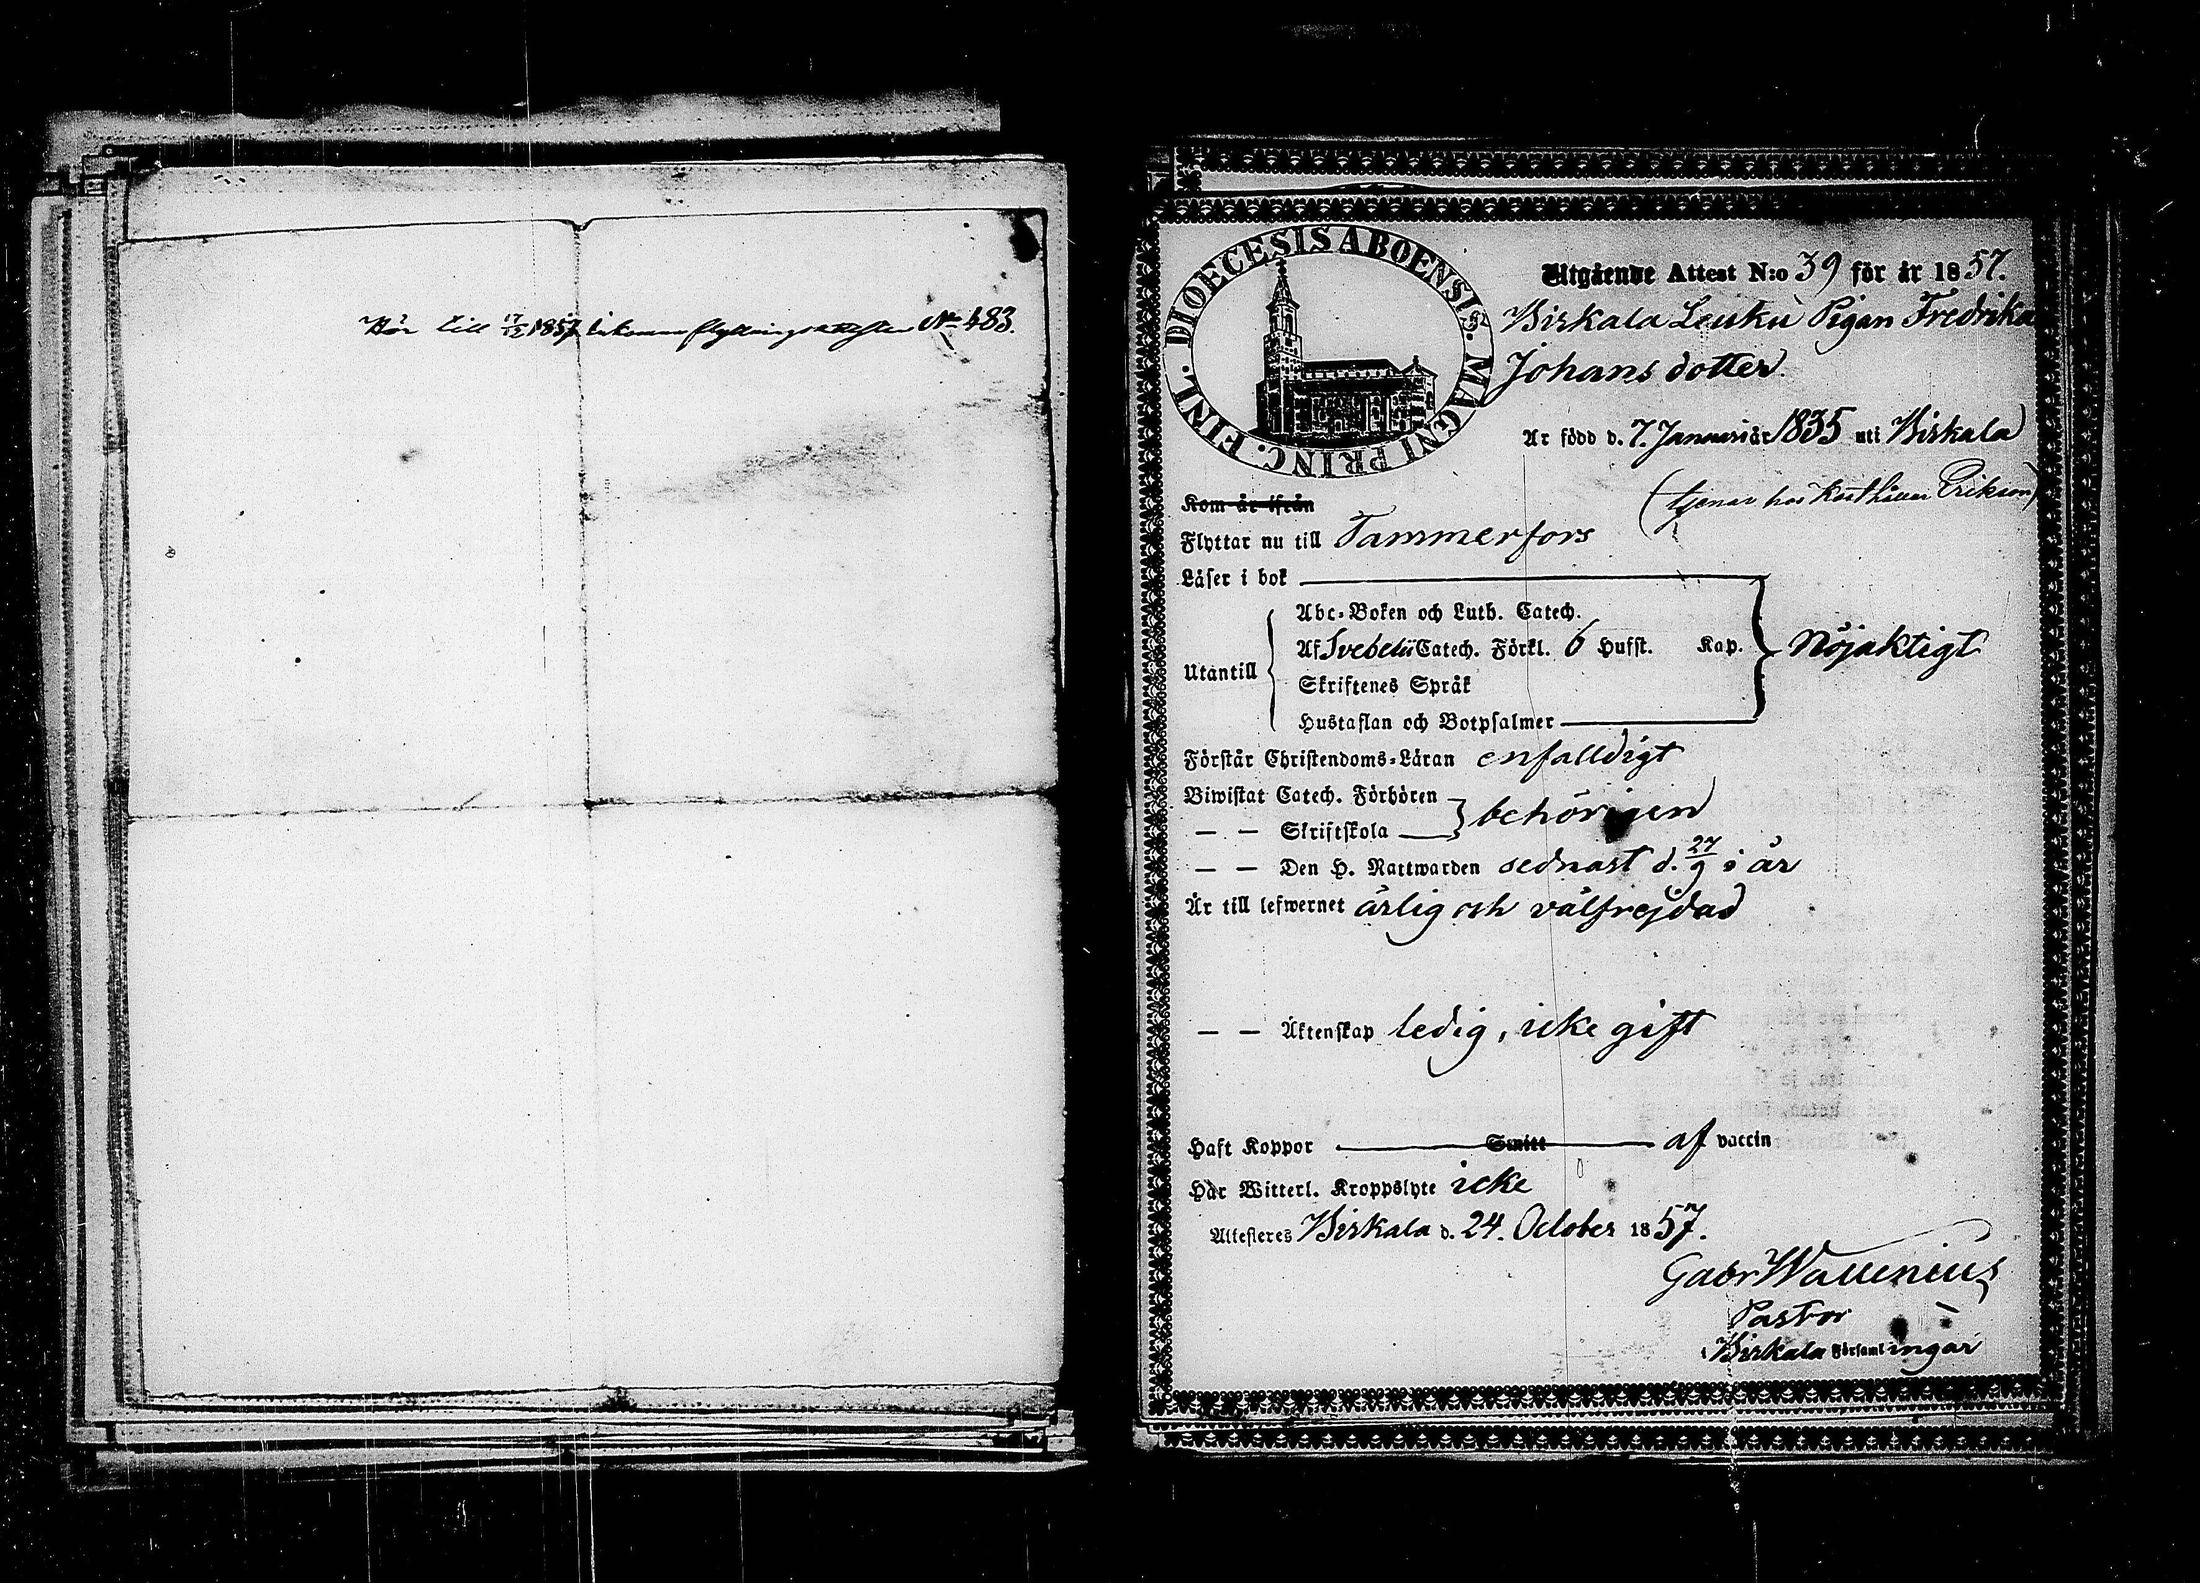 Hör till 17/12 1857 inkomne flyttningsattester No 483.
DIOECESIS ABOENSIS. MAGNI PRINC. FINL.
Utgående Attest N:o 39 för år 1857.
Birkala Leuku Pigan Fredrika
Johansdotter
Är född d. 7. Januari år 1835 uti Birkala
(tjenar hos Erikson)
Kom år ifrån
Flyttar nu till Tammerfors
Läser i bok
Abc-Boken och Luth. Catech.
Af Svebelii Catech. Förkl. 6 Hufst. Kap. Nöjaktigt
Utantill
Skriftenes Språk
Hustaflan och Botpsalmer
Förstår Christendoms-Läran enfalldigt
Biwistat Catech. Förhören
behörigen
— — Skriftskola
— — Den H. Nattwarden sednast d. 27/9 i år
Är till lefwernet ärlig och välfrejdad
— — Äktenskap ledig, icke gift
Haft Koppor Smitt af vaccin
Har Witterl. Kroppslyte icke
Attesteres Birkala d. 24. October 1857.
Gabr Wallenius
Pastor
i Birkala Församlingar